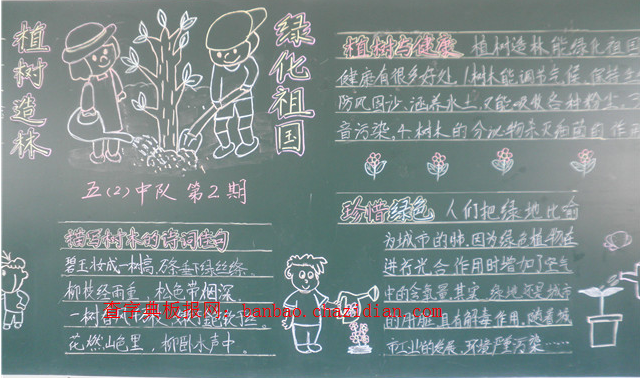 植树造林
绿化祖国
五(2)中队 第2期
描写树木的诗词佳句
碧玉妆成一树高,条垂下绿丝绦。
柳枝经雨重,松色带烟深
一树春风
花燃山色里,柳卧水声中。
查字典板报网:banbao.chazidian.com
植树与健康 植树造林能绿化祖国
健康有很多好处,树木能调节气候,保持生
防风固沙,涵养水土,又能吸收各种粉尘,
音污染,4.树木的分泌物杀灭病菌的作
珍惜绿色 人们把绿地比喻
为城市的肺,因为绿色植物在
进行光合作用时增加了空气
中的含氧量,其实,绿地还是城市
的用
具有解毒作用,随着城
市工业的发展,环境严重污染……